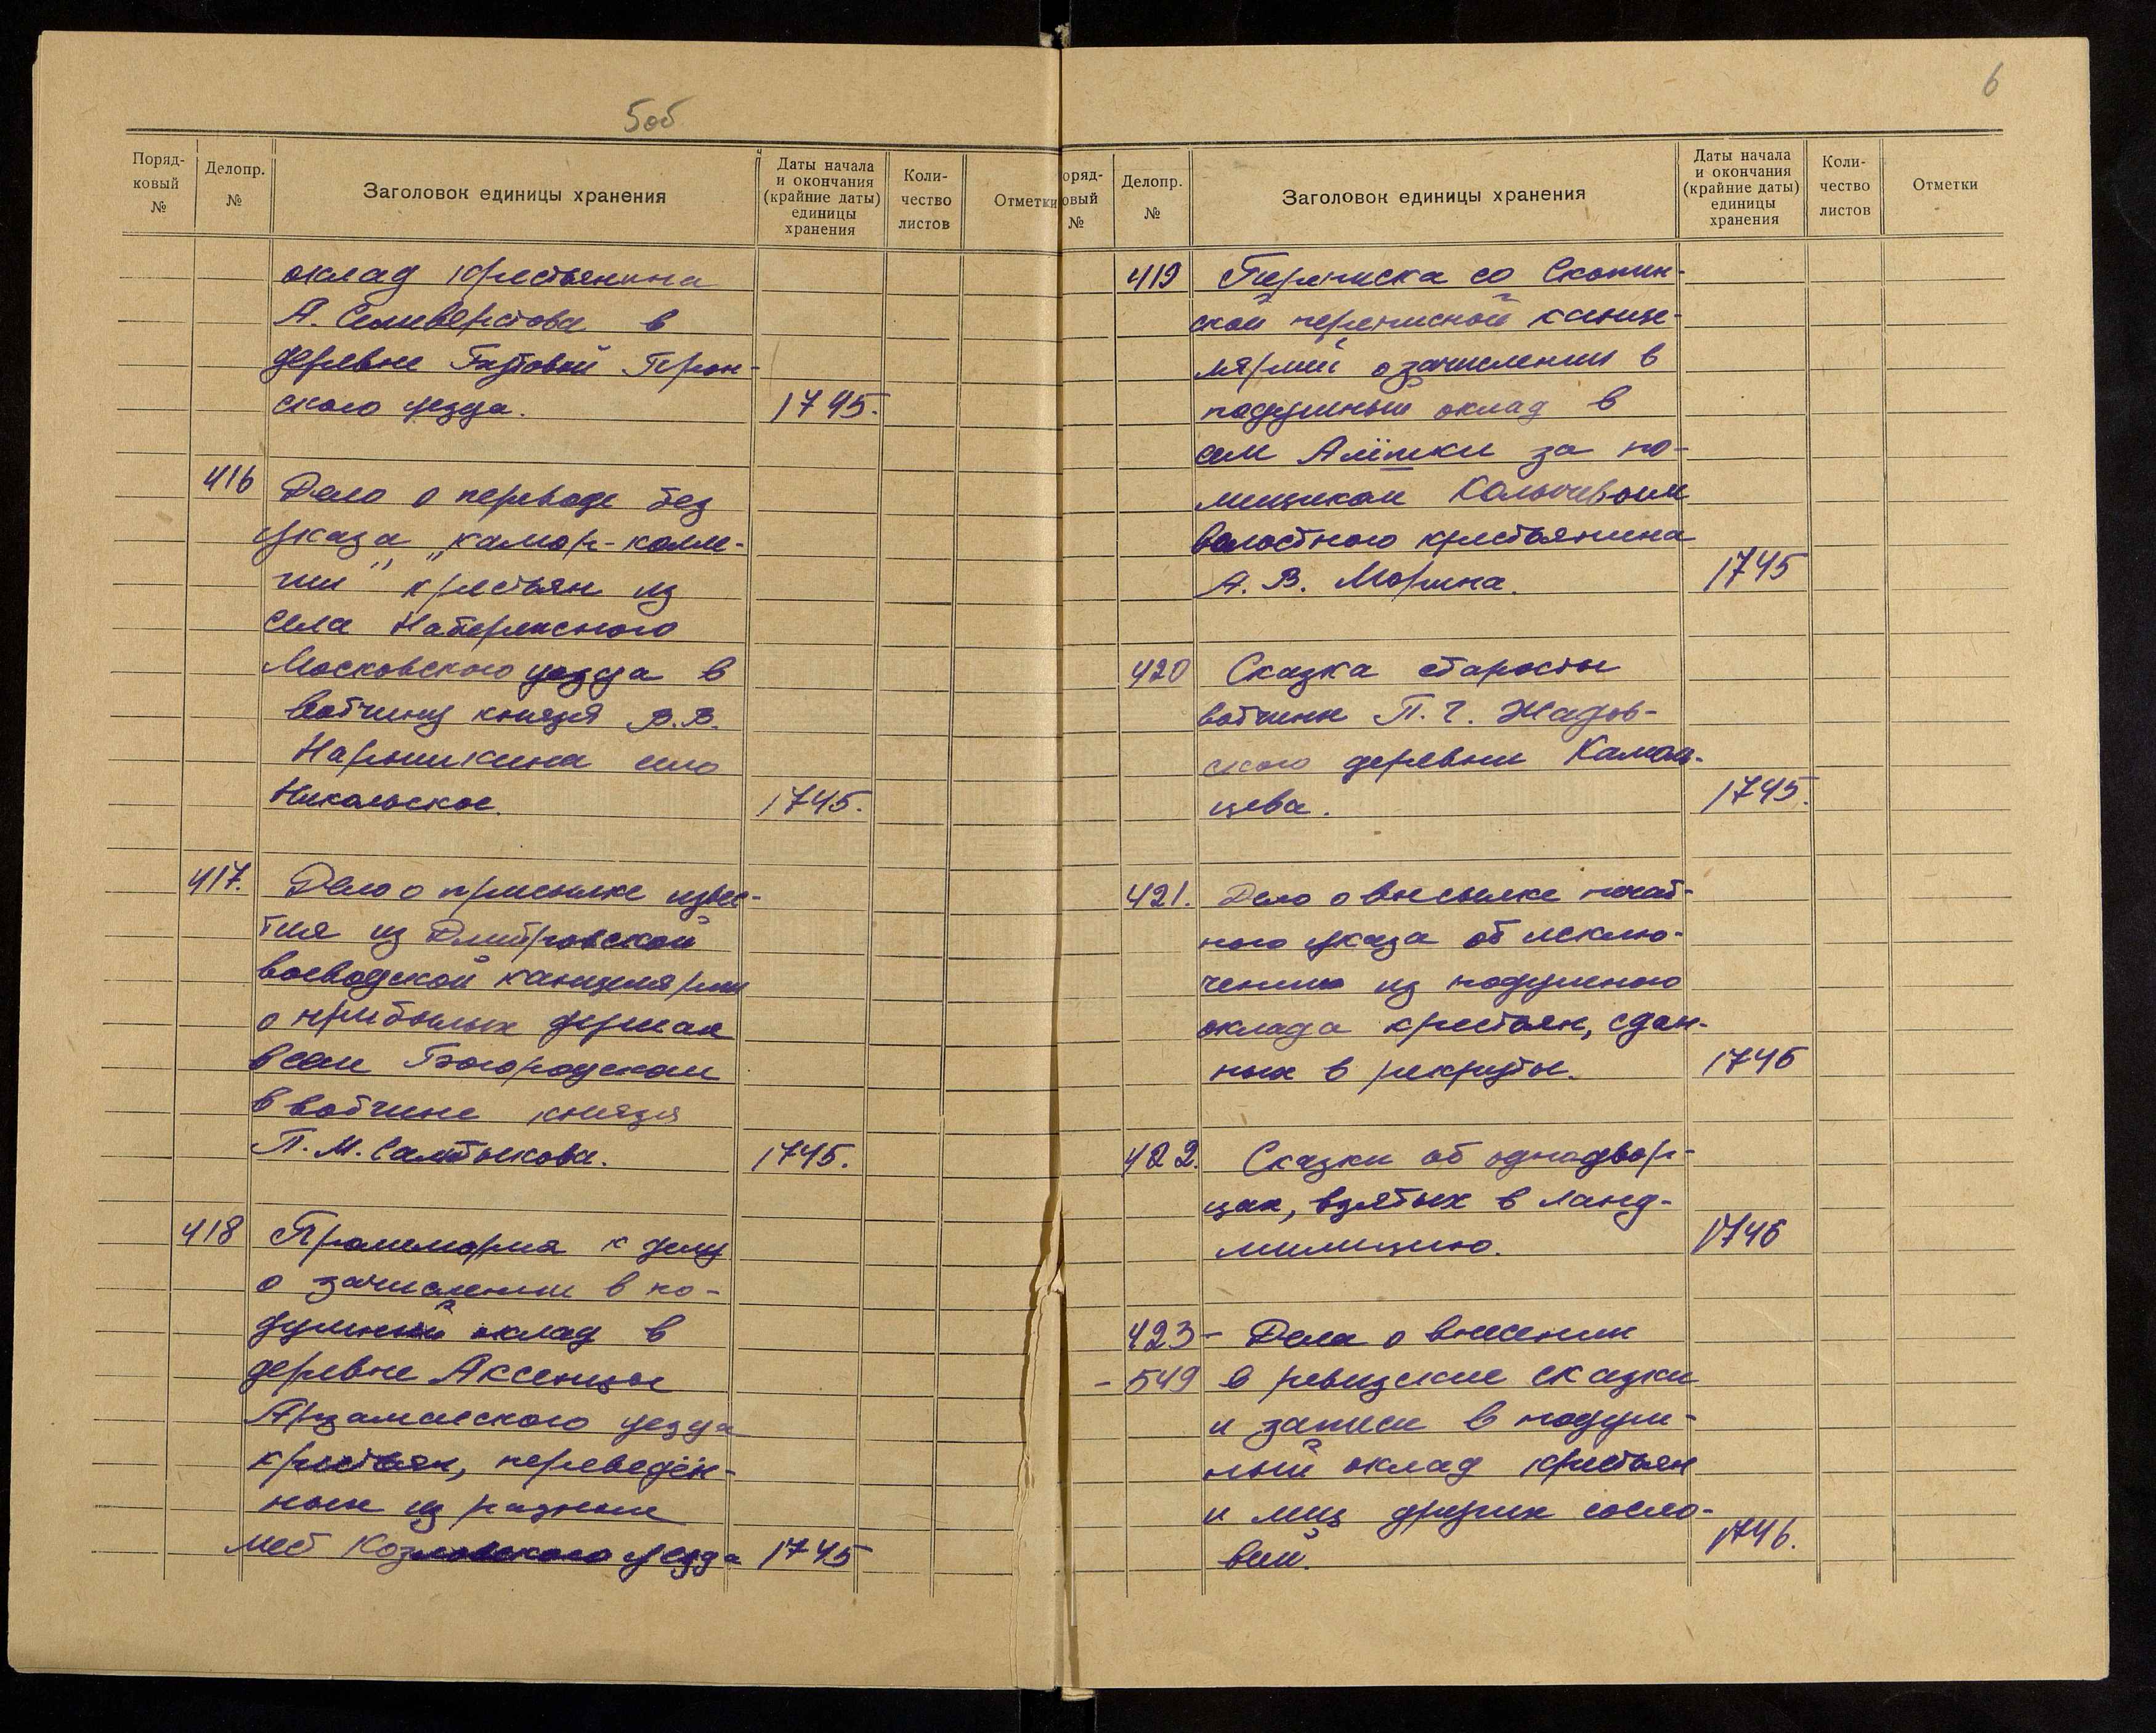 5об
Поряд-
ковый
№
Делопр.
№
Заголовок единицы хранения
Даты начала
и окончания
(крайние даты)
единицы
хранения
Коли-
чество
листов
Отметки
оклад крестьянина
А. Селиверстова в
деревне Прон-
ского уезда. 1745.
416 Дело о переводе без
указа „камор-колле-
гии" крестьян из
села
Московского уезда в
вотчину князя В.В.
Нарышкина село
Никольское. 1745.
417. Дело о присылке извес-
тия из Дмитровской
воеводской канцелярии
о прибылых душах
в селе Богородском
в вотчине князя
П. М. Салтыкова. 1745.
418 Промемория к делу
о зачислении в по-
душный оклад в
деревне Аксенцы
Арзамасского уезда
крестьян, переведён-
ных из разных
мест Козловского уезда 1745
6
оряд-
овый
№
Делопр.
№
Заголовок единицы хранения
Даты начала
и окончания
(крайние даты)
единицы
хранения
Коли-
чество
листов
Отметки
419 Переписка со Скопин-
ской переписной канце-
лярией о зачислении в
подушный оклад в
сел за по-
мещиком
волостного крестьянина
А. В. Морина. 1745
420 Сказка старосты
вотчины П. Г. Жадов-
ского деревни
цева. 1745.
421. Дело о высылке печат-
ного указа об исклю-
чении из подушного
оклада крестьян, сдан-
ных в рекруты. 1746
422. Сказки об однодвор-
цах, взятых в ланд-
милицию. 1746
423- Дела о внесении
-549 в ревизские сказки
и записи в подуш-
ный оклад крестьян
и лиц других сосло-
вий. 1746.